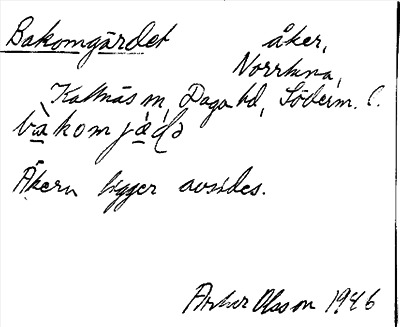 Bakomgärdet åker,
Norrtuna,
Kattnäs sn, Daga hd, Söderm. l.
bàkomjä̀ḍə
Åkern ligger avsides.
Arthur Olsson 1946